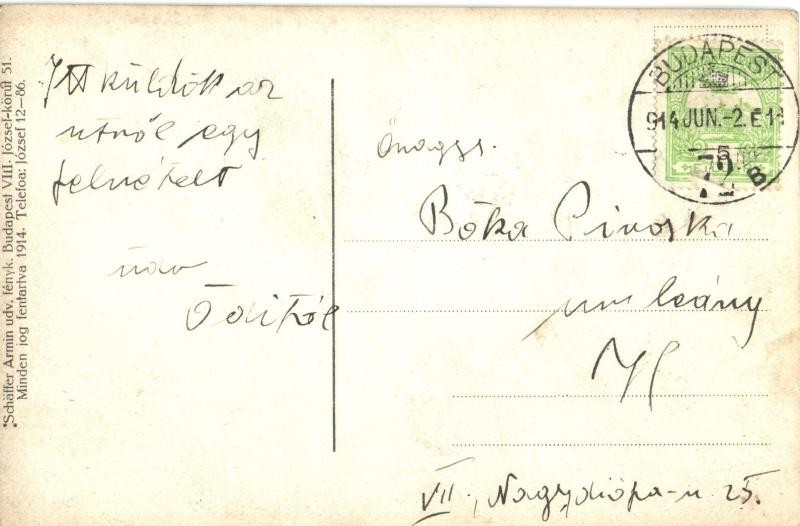 *Schäffer Ármin udv. fényk. Budapest VIII. József-körút 51.
Minden jog fentartva 1914. Telefon: József 12-86.
Itt küldök az
utról egy
felvételt
üdv
Öditől
BUDAPEST
914 JUN.-2. E 11
72
B
Önagys.
Bóka Piroska
leány
VII., Nagydiófa-u. 25.